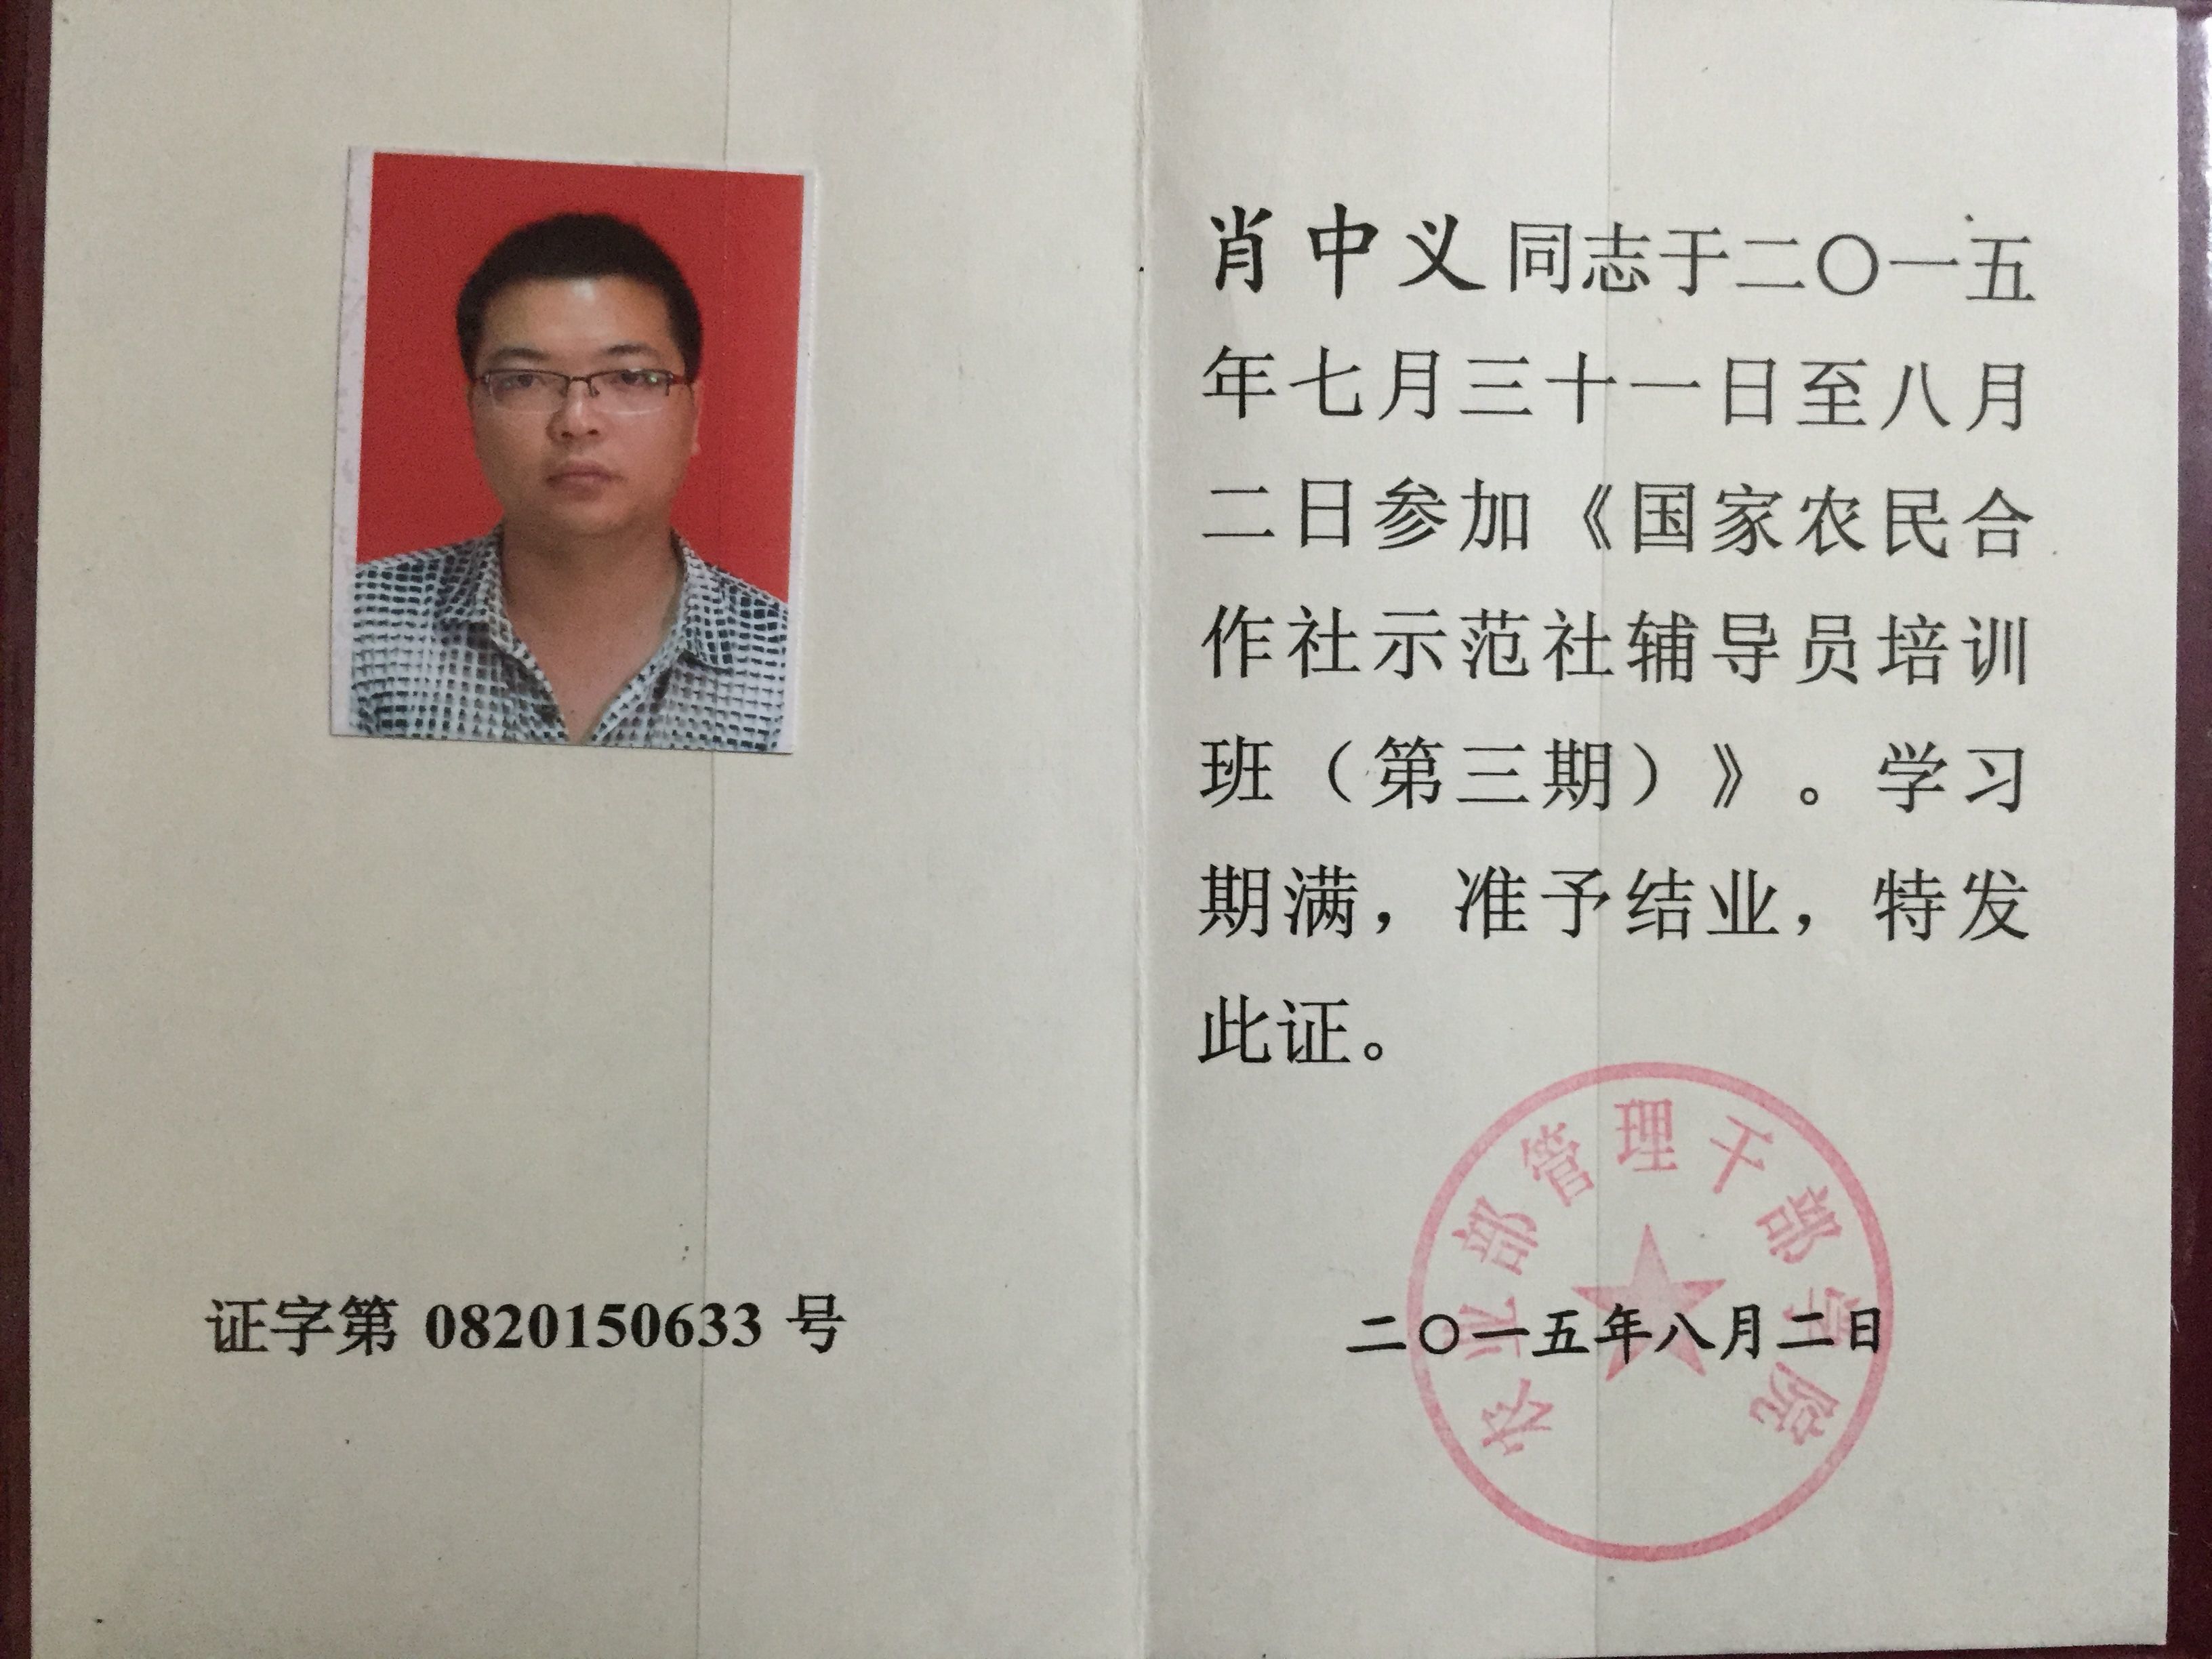 证字第 0820150633 号
肖中义同志于二〇一五
年七月三十一日至八月
二日参加《国家农民合
作社示范社辅导员培训
班（第三期）》。学习
期满，准予结业，特发
此证。
农业部管理干部学院
二〇一五年八月二日